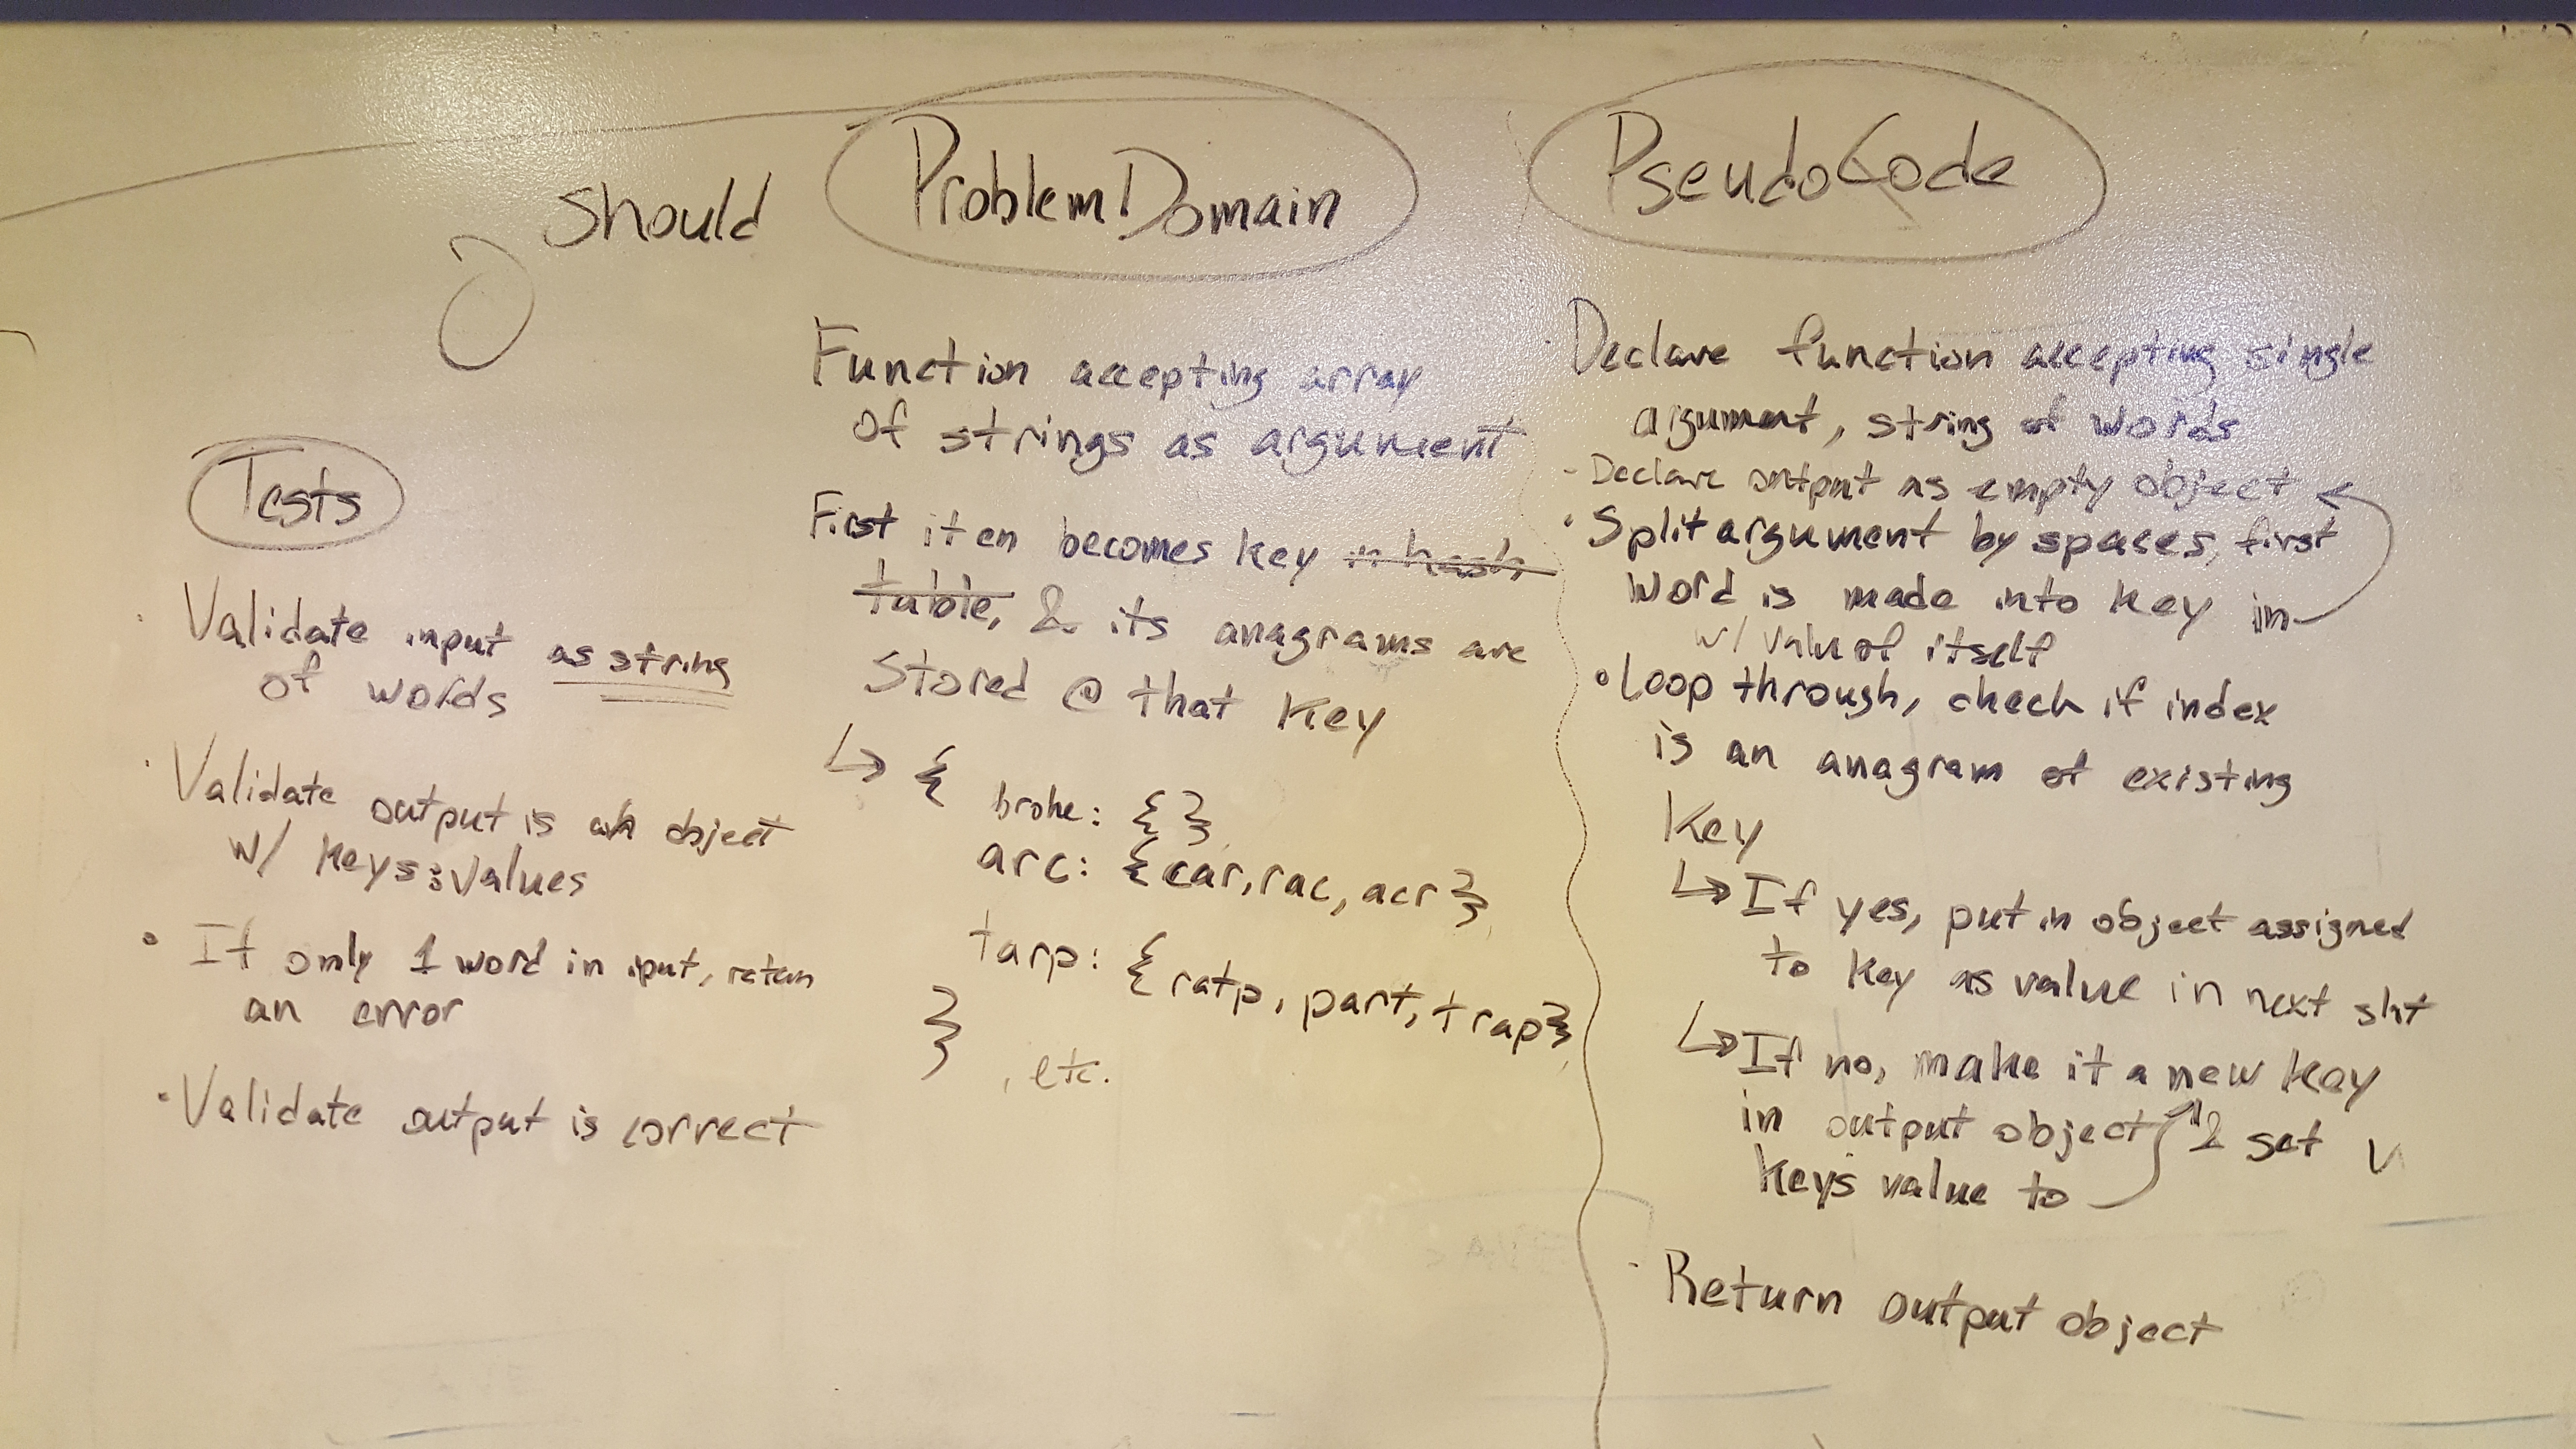 should
Problem Domain
PseudoCode
Tests
Validate input as string
of words
Validate output is an object
w/ keys:values
If only 1 word in iput, return
an error
Validate output is correct
Function accepting array
of strings as argument
First item becomes key in hash
table, & its anagrams are
Stored @ that key
↳ {
broke: { },
arc: {car, rac, acr},
tarp: {ratp, part, trap}
}
, etc.
Declare function accepting single
argument, string of words
- Declare output as empty object
• Split argument by spaces, first
word is made into key in
w/ value of itself
• Loop through, check if index
is an anagram of existing
key
↳ If yes, put in object assigned
to key as value in next slot
↳ If no, make it a new key
in output object & set
keys value to
Return output object